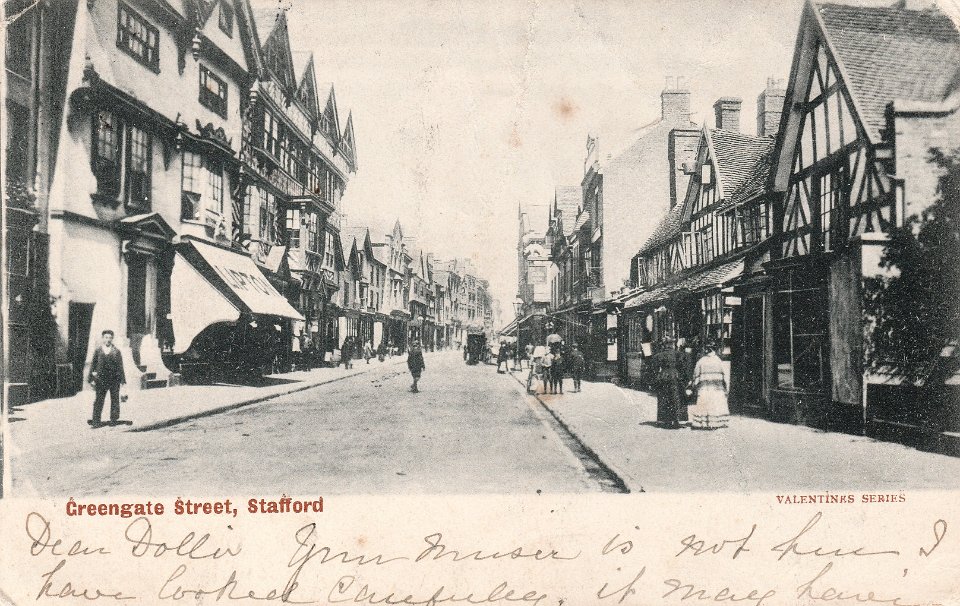 LIPTON
Greengate Street, Stafford
VALENTINES SERIES
Dear Dollie Your Muser is not here I
have looked Carefully, it may have